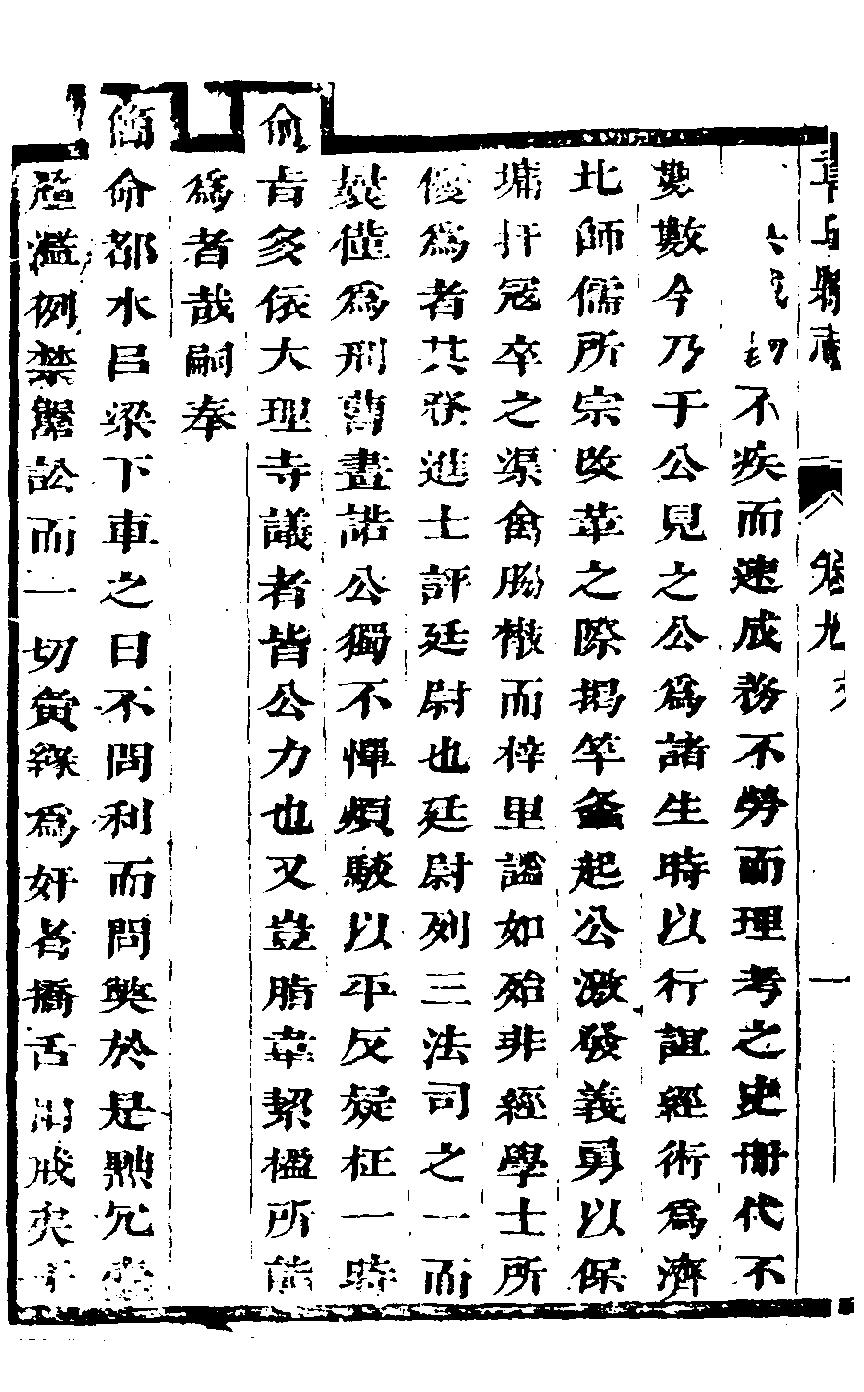 章丘縣志 卷九
不疾而速成務不勞而理考之史冊代不
數數今乃于公見之公為諸生時以行誼經術為濟
北師儒所宗改革之際揭竿蠭起公激發義勇以保
墉扞冦卒之渠禽脇檄而梓里謐如殆非經學士所
優為者其登進士評廷尉也廷尉列三法司之一而
為刑曹畫諾公獨不憚煩駮以平反疑枉一時
俞旨多依大理寺議者皆公力也又豈脂韋絜楹所能
為者哉嗣奉
簡命都水呂梁下車之日不問利而問獘於是
濫例禁訟而一切夤緣為奸者撟舌相戒矣